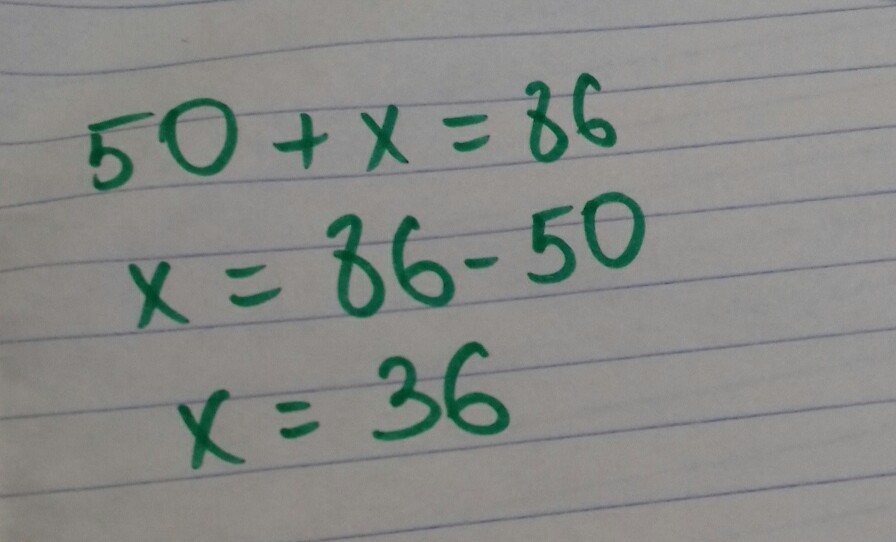 50 + x = 86
x = 86 - 50
x = 36